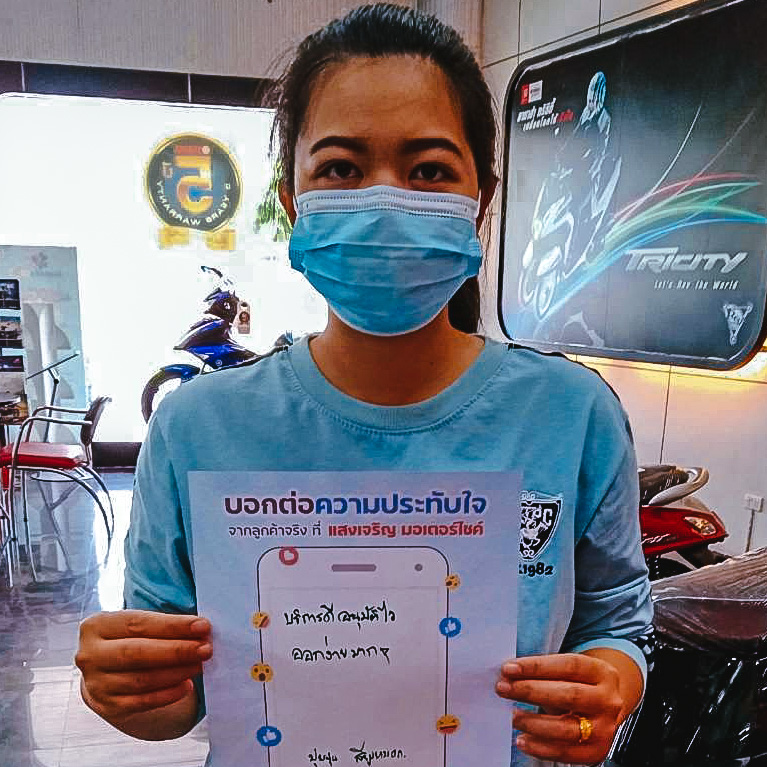 5
5 YEARS WARRANTY
ยามาฮ่า ทริซิตี้
TRICITY
Let's Hey the World
บอกต่อความประทับใจ
จากลูกค้าจริง ที่ แสงเจริญ มอเตอร์ไซค์
บริการดี อนุมัติไว
ออกง่ายมากๆ
1982